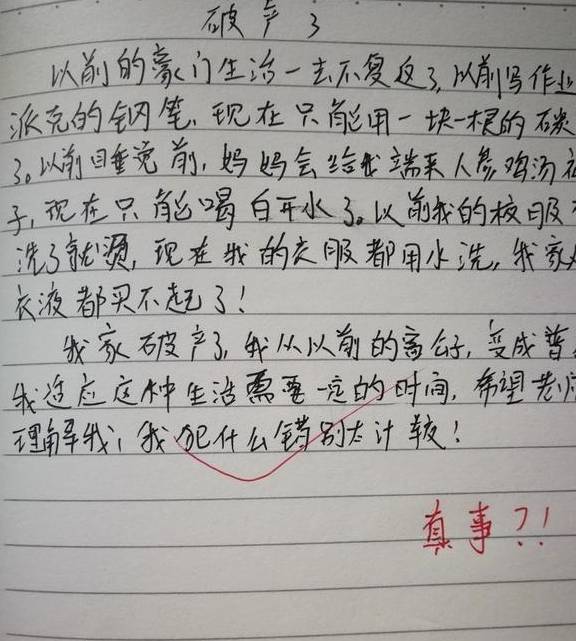 破产了
以前的豪门生活一去不复返了,以前写作业
派克的钢笔,现在只能用一块一根的碳
了。以前睡觉前,妈妈会给我端来人参鸡汤
子,现在只能喝白开水了。以前我的校服
洗了就烫,现在我的衣服都用水洗,我家
衣液都买不起了!
我家破产了,我从以前的富公子,变成普
我适应这种生活需要一定的时间,希望老师
理解我,我犯什么错别太计较!
真事?!